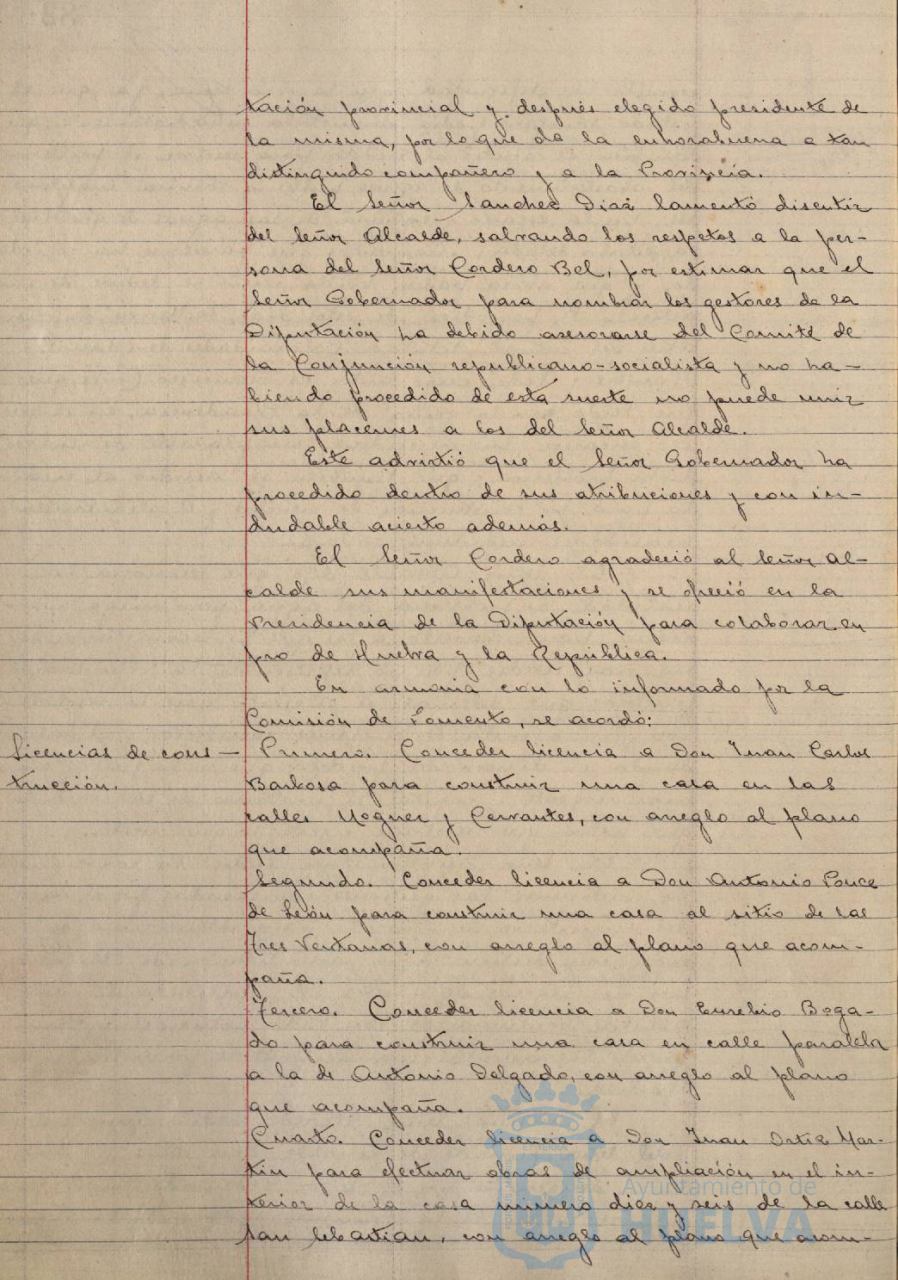 tación provincial y después elegido presidente de
la misma, por lo que da la enhorabuena a tan
distinguido compañero y a la Provincia.
El Señor Sanchez Diaz lamentó disentir
del Señor Alcalde, salvando los respetos a la per-
sona del Señor Cordero Bel, por estimar que el
Señor Gobernador para nombrar los gestores de la
Diputación ha debido asesorarse del Comité de
la Conjunción republicano-socialista y no ha-
biendo procedido de esta suerte no puede unir
sus placemes a los del Señor Alcalde.
Este advirtió que el Señor Gobernador ha
procedido dentro de sus atribuciones y con in-
dudable acierto además.
El Señor Cordero agradeció al Señor Al-
calde sus manifestaciones y se ofreció en la
Presidencia de la Diputación para colaborar en
pro de Huelva y la República.
En armonia con lo informado por la
Comisión de Fomento, se acordó:
Licencias de cons-
trucción.
Primero. Conceder licencia a Don Juan Carlos
Barbosa para construir una casa en las
calles Moguer y Cervantes, con arreglo al plano
que acompaña.
Segundo. Conceder licencia a Don Antonio Ponce
de León para construir una casa al sitio de las
Tres Ventanas, con arreglo al plano que acom-
paña.
Tercero. Conceder licencia a Don Eusebio Boga-
do para construir una casa en calle paralela
a la de Antonio Delgado, con arreglo al plano
que acompaña.
Cuarto. Conceder licencia a Don Juan Ortiz Mar-
tin para efectuar obras de ampliación en el in-
terior de la casa número diez y seis de la calle
San Sebastián, con arreglo al plano que acom-
Ayuntamiento de
HUELVA